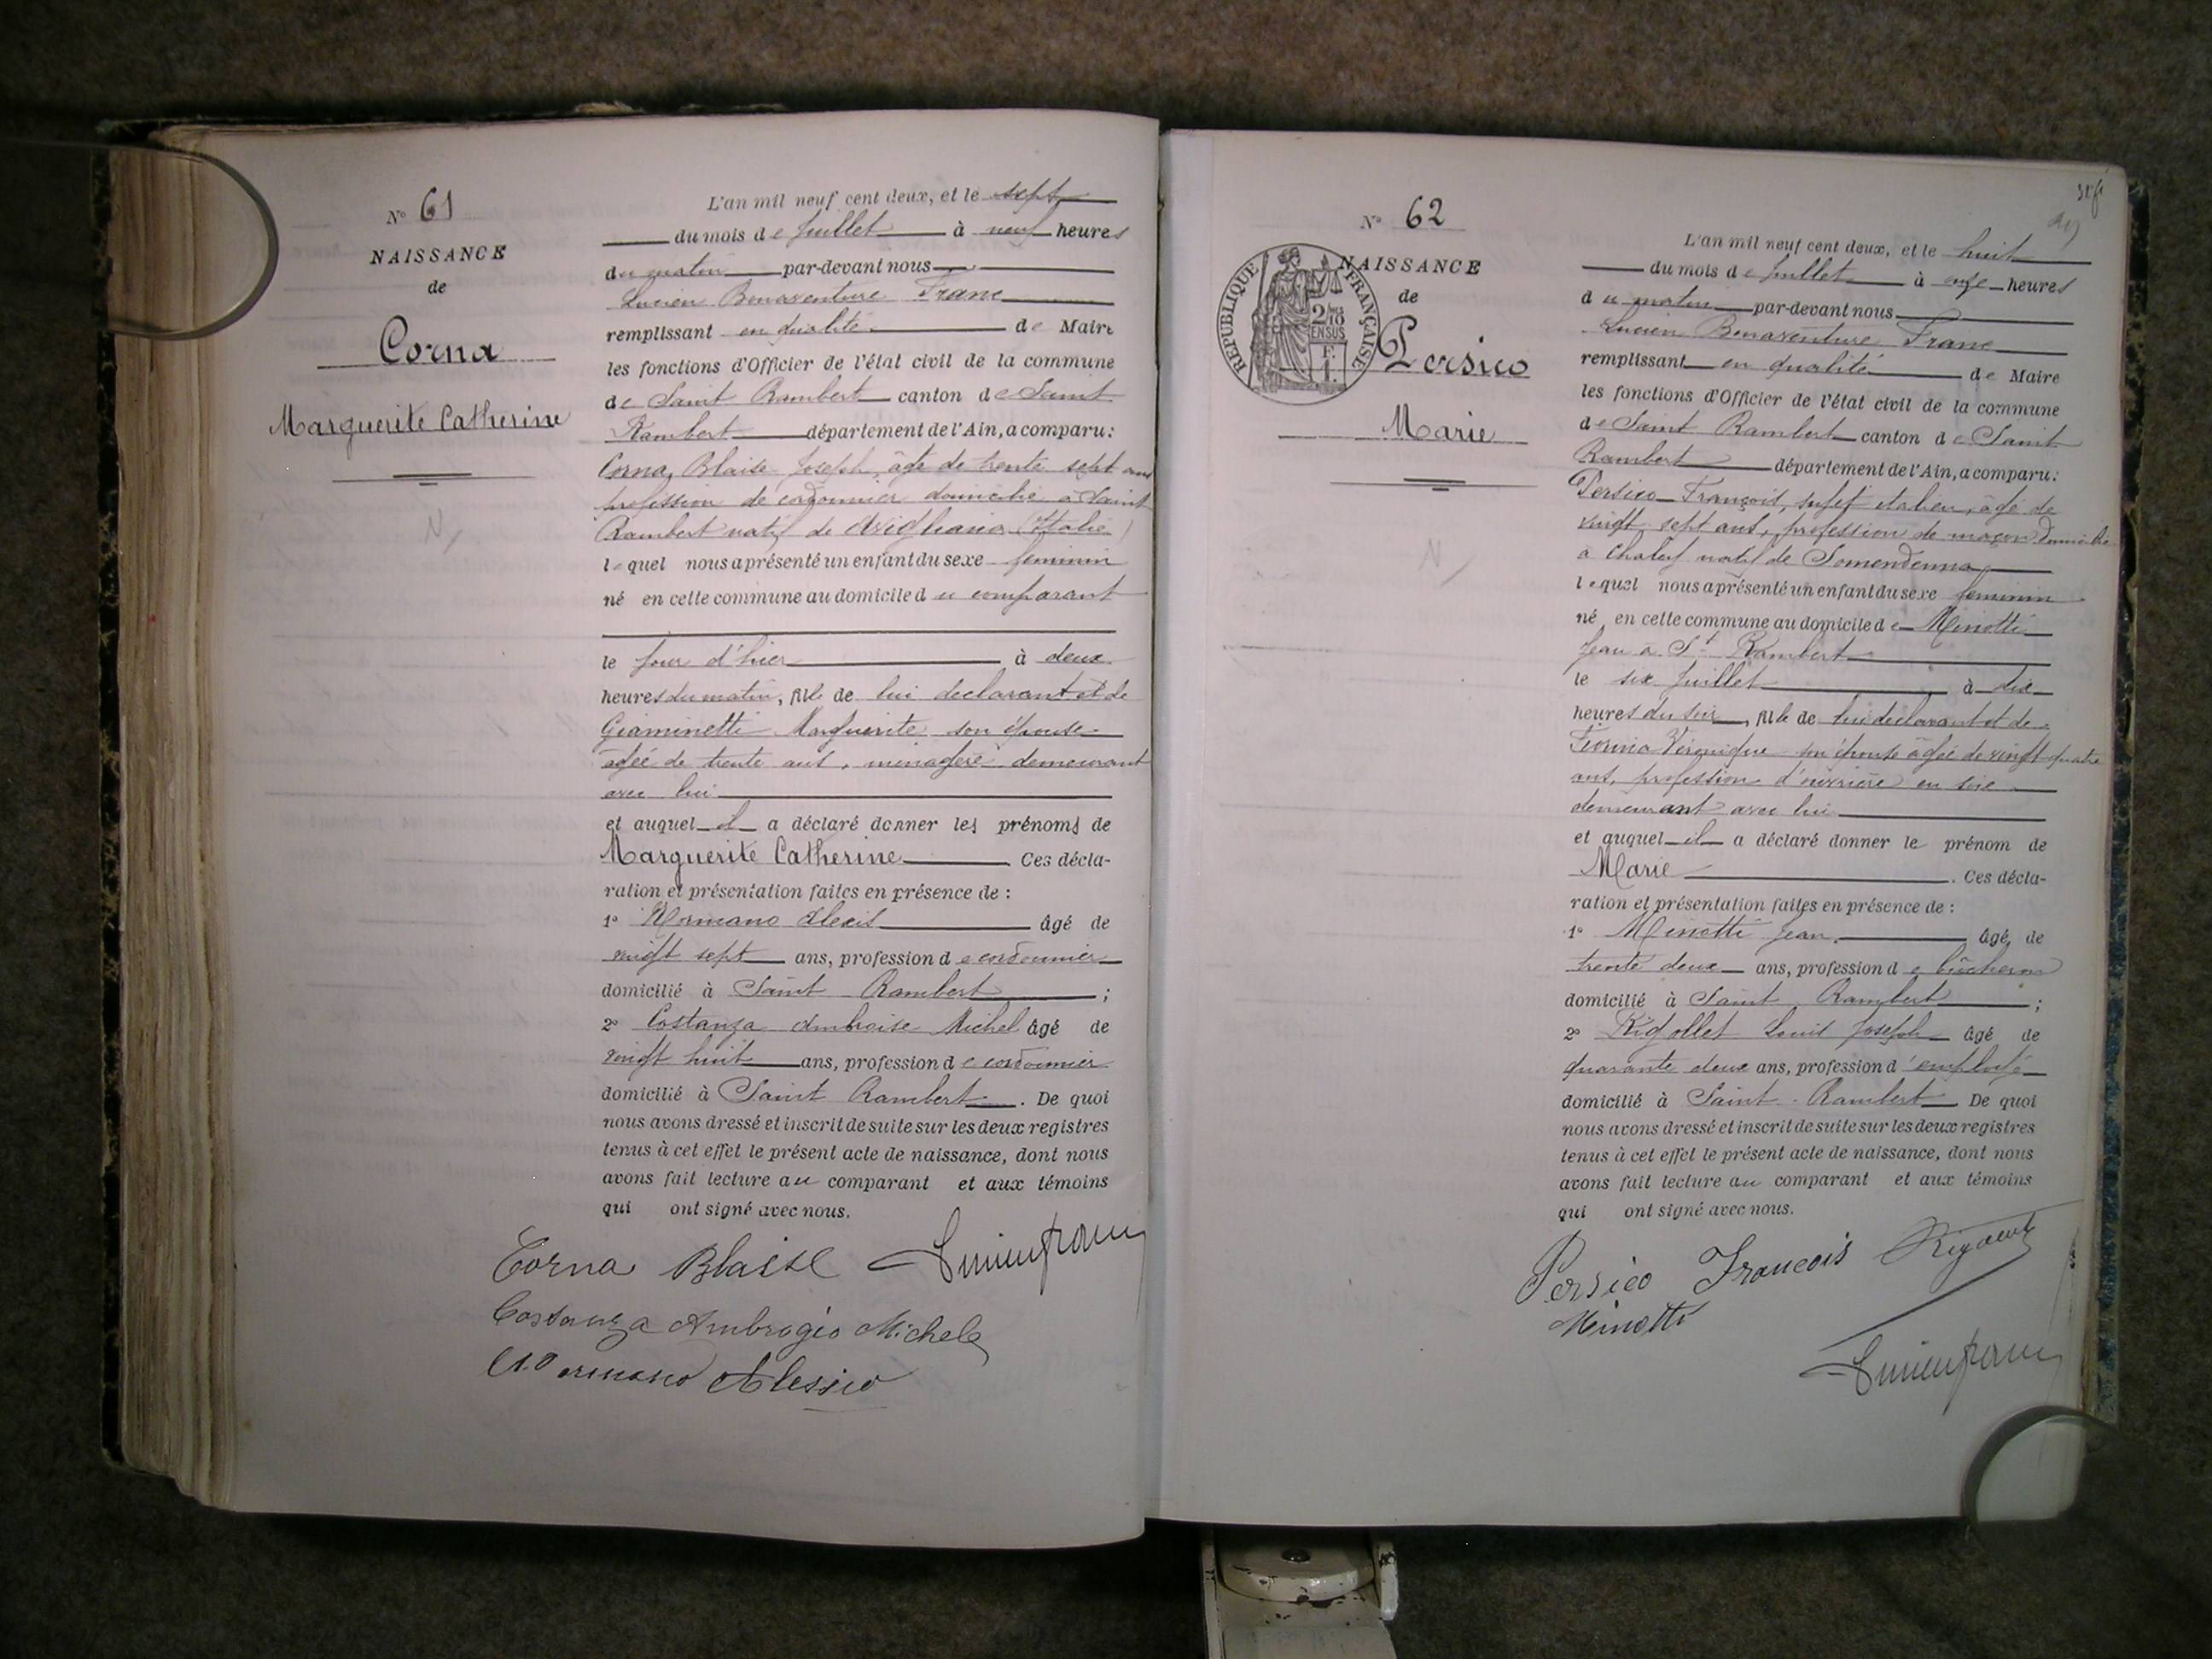 N° 61
NAISSANCE
de
Corna
Marguerite Catherine
N
L'an mil neuf cent deux, et le sept
du mois de juillet à neuf heures
du matin par-devant nous
Lucien Bonaventure Franc
remplissant en qualité de Maire
les fonctions d'Officier de l'état civil de la commune
de Saint Rambert canton de Saint
Rambert département de l'Ain, a comparu:
Corna, Blaise Joseph, âgé de trente sept ans
profession de cordonnier domicilié à Saint
Rambert natif de Avigliana (Italie)
lequel nous a présenté un enfant du sexe feminin
né en cette commune au domicile du comparant
le jour d'hier à deux
heures du matin, fille de lui declarant et de
Giaminetti Marguerite son épouse
âgée de trente ans, ménagère demeurant
avec lui
et auquel il a déclaré donner les prénoms de
Marguerite Catherine Ces décla-
ration et présentation faites en présence de :
1° Alexis âgé de
vingt sept ans, profession de cordonnier
domicilié à Saint Rambert ;
2° Costanza Ambroise Michel âgé de
vingt huit ans, profession de cordonnier
domicilié à Saint Rambert. De quoi
nous avons dressé et inscrit de suite sur les deux registres
tenus à cet effet le présent acte de naissance, dont nous
avons fait lecture au comparant et aux témoins
qui ont signé avec nous.
Corna Blaise
Costanza Ambrogio Michele
Alessio
N° 62
NAISSANCE
de
Persico
Marie
REPUBLIQUE FRANÇAISE
N
L'an mil neuf cent deux, et le huit
du mois de juillet à onze heures
du matin par-devant nous
Lucien Bonaventure Franc
remplissant en qualité de Maire
les fonctions d'Officier de l'état civil de la commune
de Saint Rambert canton de Saint
Rambert département de l'Ain, a comparu:
Persico François, sujet italien, âgé de
vingt sept ans, profession de maçon domicilié
à Chaley natif de Somendenna
lequel nous a présenté un enfant du sexe feminin
né en cette commune au domicile de Minotti
Jean à St Rambert
le six juillet à dix
heures du soir, fille de lui déclarant et de
Véronique son épouse âgée de vingt quatre
ans, profession d'ouvrière en soie
demeurant avec lui
et auquel il a déclaré donner le prénom de
Marie. Ces décla-
ration et présentation faites en présence de :
1° Minotti Jean âgé de
trente deux ans, profession de bûcheron
domicilié à Saint Rambert ;
2° Rigollet Louis Joseph âgé de
quarante deux ans, profession d'employé
domicilié à Saint-Rambert De quoi
nous avons dressé et inscrit de suite sur les deux registres
tenus à cet effet le présent acte de naissance, dont nous
avons fait lecture au comparant et aux témoins
qui ont signé avec nous.
Persico François
Minotti